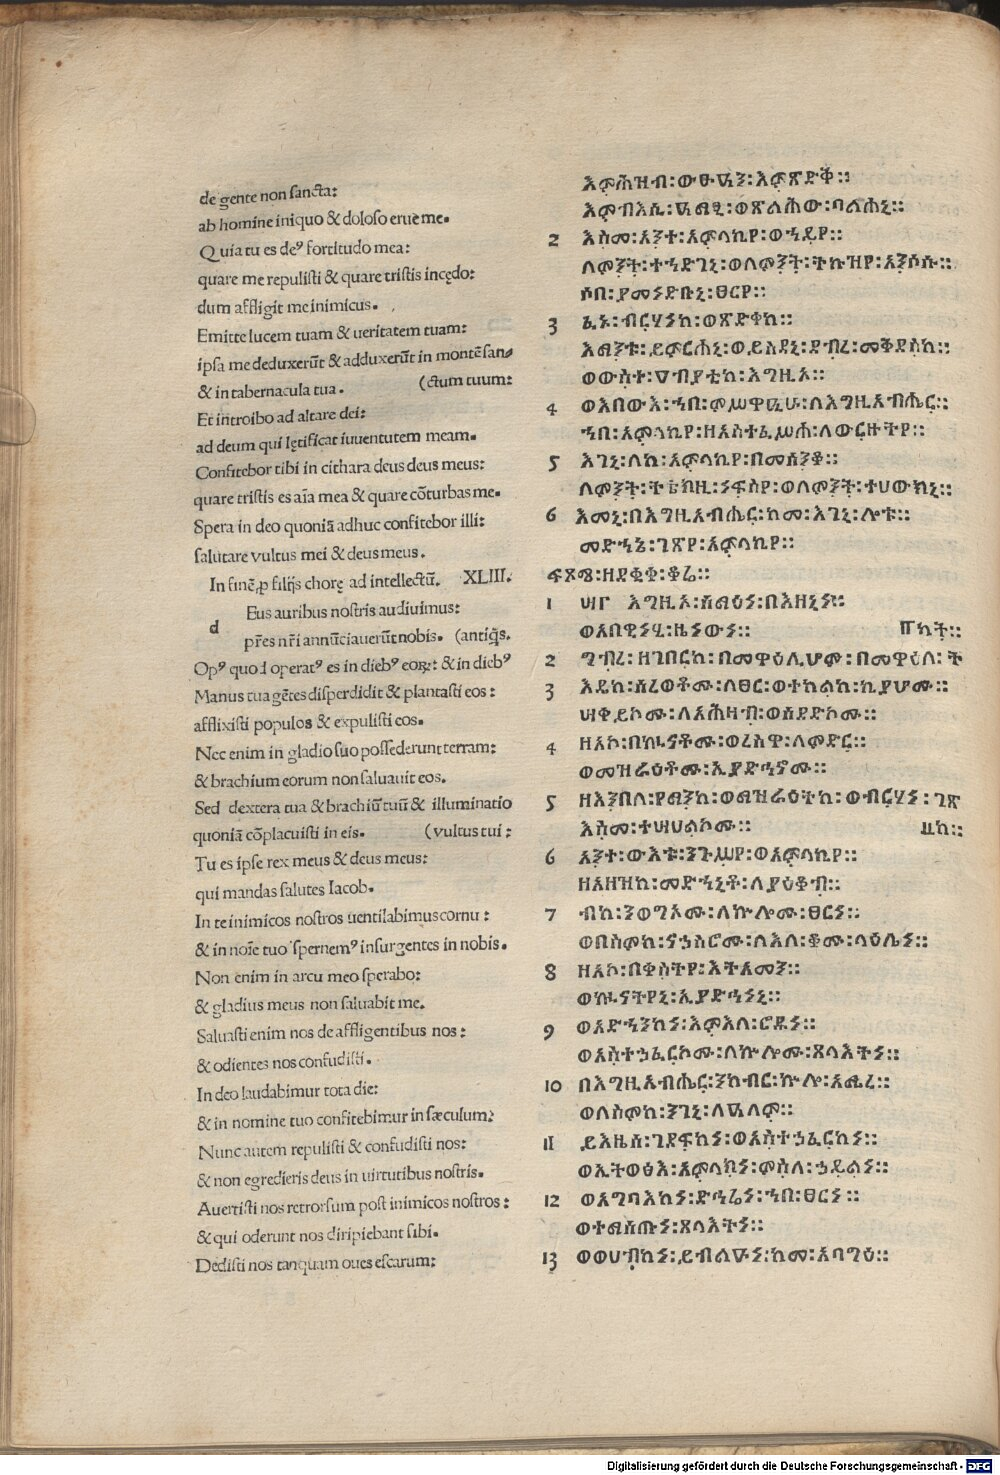 de gente non sancta:
ab homine iniquo & doloso erue me.
Quia tu es deꝰ fortitudo mea:
quare me repulisti & quare tristis incędo:
dum affligit me inimicus.
Emitte lucem tuam & ueritatem tuam:
ipsa me deduxerūt & adduxerūt in montē san
& in tabernacula tua. (ctum tuum:
Et introibo ad altare dei:
ad deum qui lętificat iuuentutem meam.
Confitebor tibi in cithara deus deus meus:
quare tristis es aīa mea & quare cōturbas me.
Spera in deo quoniā adhuc confitebor illi:
salutare vultus mei & deus meus.
In finē chorę ad intellectū. XLIII.
Eus auribus nostris audiuimus:
d
pr̄es nr̄i annūciauerūt nobis. (antiq̄s.
Opꝰ quod operatꝰ es in diebꝰ eoꝝ: & in diebꝰ
Manus tua gētes disperdidit & plantasti eos:
afflixisti populos & expulisti eos.
Nec enim in gladio suo possederunt terram:
& brachium eorum non saluauit eos.
Sed dextera tua & brachiū tuū & illuminatio
quoniā cōplacuisti in eis. (vultus tui:
Tu es ipse rex meus & deus meus:
qui mandas salutes Iacob.
In te inimicos nostros uentilabimus cornu:
& in noīe tuo spernemꝰ insurgentes in nobis.
Non enim in arcu meo sperabo:
& gladius meus non saluabit me.
Saluasti enim nos de affligentibus nos:
& odientes nos confudisti.
In deo laudabimur tota die:
& in nomine tuo confitebimur in sæculum:
Nunc autem repulisti & confudisti nos:
& non egredieris deus in uirtutibus nostris.
Auertisti nos retrorsum post inimicos nostros:
& qui oderunt nos diripiebant sibi.
Dedisti nos tanquam oues escarum:
እምሕዝብ፡ውፁዓን፡እምጽድቅ፡፡
እምብእሲ፡ዓማፂ፡ወጽልሕው፡ባልሐኒ፡፡
2 እስመ፡አንተ፡አምላኪየ፡ወኀይየ፡፡
ለምንት፡ተኀድገኒ፡ወለምንት፡ትኩዝየ፡አንሶሱ፡፡
ሶበ፡ያመነድቡኒ፡ፀርየ፡፡
3 ፈኑ፡ብርሃነከ፡ወጽድቀከ፡፡
እማንቱ፡ይምርሐኒ፡ወይስደኒ፡ደብረ፡መቅደስከ፡፡
ወውስተ፡ማኅደሪከ፡እግዚኦ፡፡
4 ወእበውእ፡ኀበ፡ምሥዋዒሁ፡ለእግዚአብሔር፡፡
ኀበ፡አምላኪየ፡ዘአስተፈሥሐ፡ለውርዙትየ፡፡
5 እገኒ፡ለከ፡አምላኪየ፡በመሰንቆ፡፡
ለምንት፡ትቴክዚ፡ነፍስየ፡ወለምንት፡ተሀውክኒ፡፡
6 እመኒ፡በእግዚአብሔር፡ከመ፡እገኒ፡ሎቱ፡፡
መድኀኔ፡ገጽየ፡አምላኪየ፡፡
፡ዘደቂቀ፡ቆሬ፡፡
1 እግዚኦ፡ሰማዕነ፡በእዘኒነ፡፡
ወአበዊነሂ፡ዜነውነ፡፡ ከት፡፡
2 ግብረ፡ዘገበርከ፡በመዋዕሊሆሙ፡በመዋዕለ፡ት
3 እዴከ፡ሰረወቶሙ፡ለፀር፡ወተከልከ፡ኪያሆሙ፡፡
ሣቀይኮሙ፡ለአሕዛብ፡ወሰደድኮሙ፡፡
4 ዘአኮ፡በኵናቶሙ፡ወረስዋ፡ለምድር፡፡
ወመዝራዕቶሙ፡ኢያድኀኖሙ፡፡
5 ዘእንበለ፡የማንከ፡ወመዝራዕትከ፡ወብርሃነ፡ገጽ
እስመ፡ተሣሀልኮሙ፡፡ ከ፡፡
6 አንተ፡ውእቱ፡ንጉሥየ፡ወአምላኪየ፡፡
ዘአዘዝከ፡መድኀኒቶ፡ለያዕቆብ፡፡
7 ብከ፡ንወግኦሙ፡ለኵሎሙ፡ፀርነ፡፡
ወበስምከ፡ናኀስሮሙ፡ለእለ፡ቆሙ፡ላዕሌነ፡፡
8 ዘአኮ፡በቀስትየ፡እትአመን፡፡
ወኵናትየኒ፡ኢያድኅነኒ፡፡
9 ወአድኀንከነ፡እምእለ፡ሮዱነ፡፡
ወአስተኀፈርኮሙ፡ለኵሎሙ፡ጸላእትነ፡፡
10 በእግዚአብሔር፡ንከብር፡ኵሎ፡አሚረ፡፡
ወለስምከ፡ንገኒ፡ለዓለም፡፡
11 ይእዜሰ፡ገደፍከነ፡ወአስተኀፈርከነ፡፡
ወኢትወፅእ፡አምላክነ፡ምስለ፡ኀይልነ፡፡
12 ወአግባእከነ፡ድኅሬነ፡ኀበ፡ፀርነ፡፡
ወተማሰጡነ፡ጸላእትነ፡፡
13 ወወሀብከነ፡ይብልዑነ፡ከመ፡አባግዕ፡፡
Digitalisierung gefördert durch die Deutsche Forschungsgemeinschaft - DFG